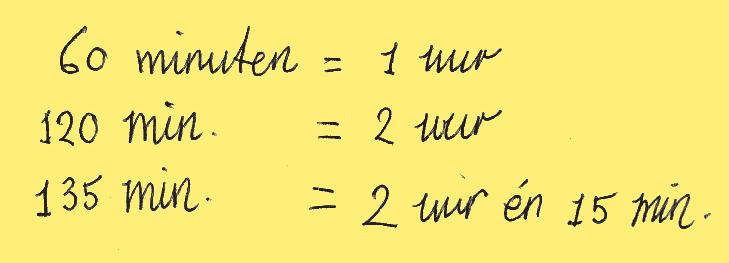 60 minuten = 1 uur
120 min. = 2 uur
135 min. = 2 uur én 15 min.